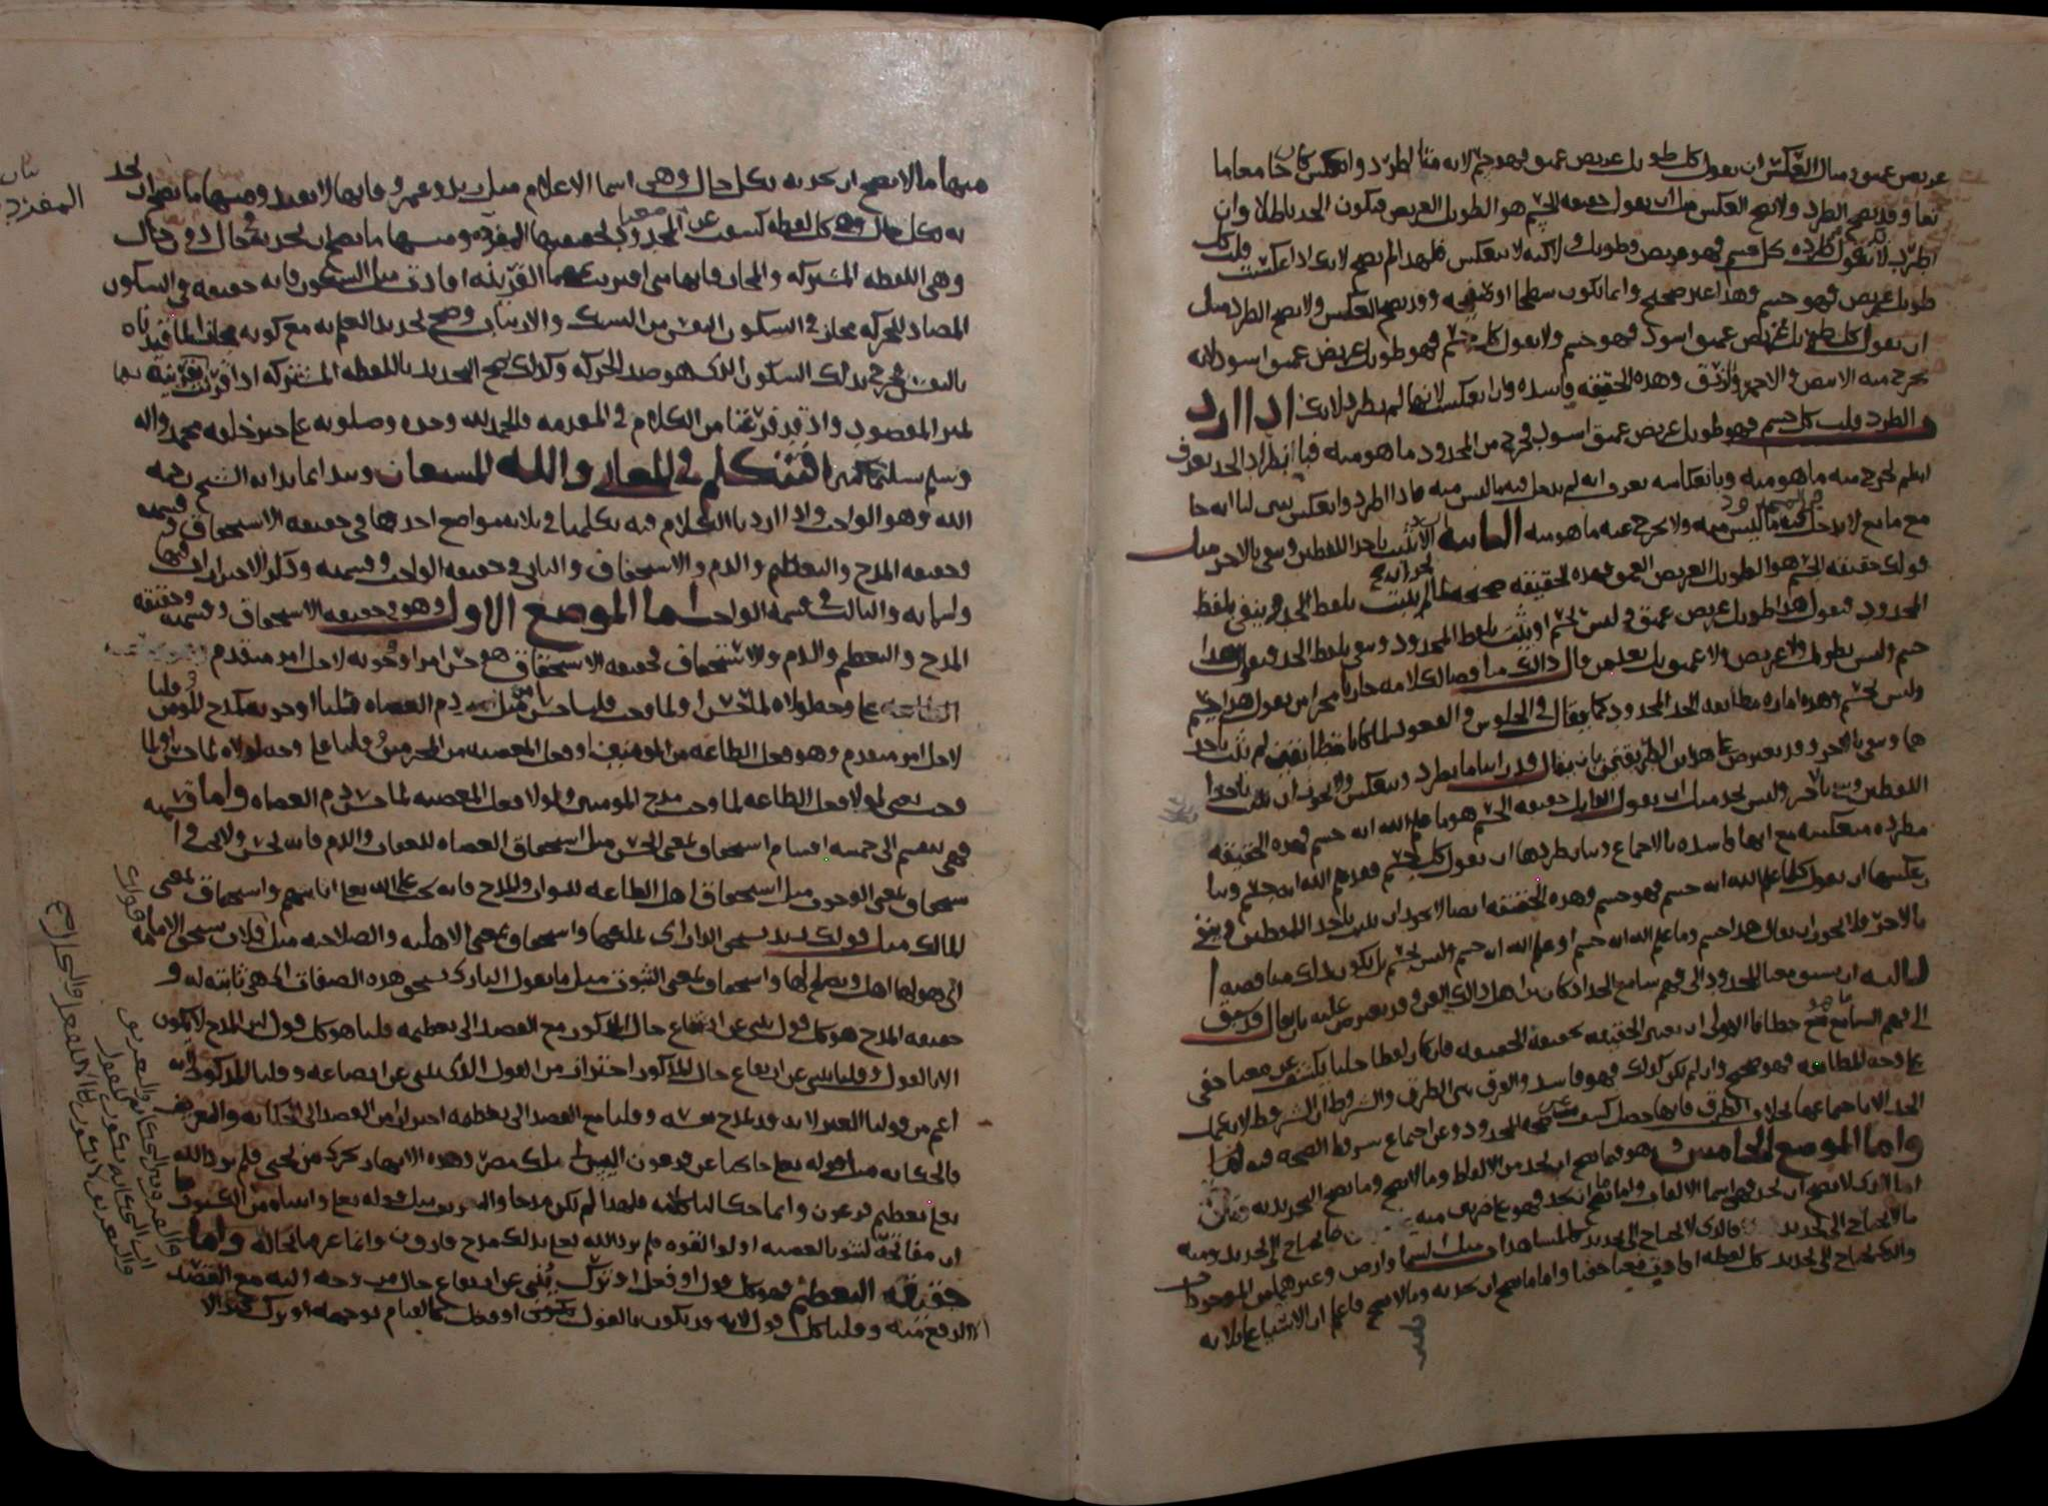 عريض عميق ومثال العكس ان يقول كل طويل عريض عميق فهو جسم لانه متا اطرد وانعكس كان حا معاما
نعا وقد يصح الطرد ولا يصح العكس مثل ان يقول حقيقه الجسم هو الطويل العريض فيكون الحد باطلا وان
اطرد لانه يقول في طرده كل جسم فهو عريض وطويل ولاكنه لا ينعكس فلهذا لم يصح لانك اذا عكست قلت كل
طويل عريض فهو جسم وهذا غير صحيح وانما يكون سطحا او صفيحه وقد يصح العكس ولا يصح الطرد مثل
ان يقول كل طويل عريض عميق اسود فهو جسم ولا يقول كل جسم فهو طويل عريض عميق اسود لانه
يخرج منه الابيض والاحمر والازرق وهذه الحقيقه فاسده وان انعكس لانها لم تطرد لانك اذا اردت
الطرد قلت كل جسم فهو طويل عريض عميق اسود فيخرج من المحدود ما هو منه فباطراد الحد يعرف
انه لم يخرج منه ما هو منه وبانعكاسه يعرف انه لم يدخل فيه ما ليس منه فاذا اطرد وانعكس تبين لنا انه جا
مع مانع لا يدخل فيه ما ليس منه ولا يخرج عنه ما هو منه الثانيه الا يثبت باحد اللفظين وينفى بالاخر مثل
قولك حقيقه الجسم هو الطويل العريض العميق فهذه الحقيقه صحيحه ما لم يثبت بلفظ الحد وينفى بلفظ
المحدود فيقول هذا طويل عريض عميق وليس بجسم او يثبت بلفظ المحدود وينفى بلفظ الحد فيقول هذا
جسم وليس بطويل ولا عريض ولا عميق بل يعد من قال ذالك مناقضا لكلامه جاريا مجرا من يقول هذا جسم
وليس بجسم وهذه اماره مطابقه الحد المحدود كما يقال في الجلوس والقعود لما كانا متطابقين لم يثبت باحد
هما وينفى بالاخر وقد يعترض على هذين الطريقتين بان يقال قد راينا ما يطرد وينعكس ولا يجوز ان يثبت باحد
اللفظين وينفى بالاخر وليس بحد مثل ان يقول القايل حقيقه الجسم هو ما علم الله انه جسم فهذه الحقيقه
مطرده منعكسه مع انها فاسده بالاجماع وبيان طردها ان يقول كل جسم فقد علم الله انه جسم وبيان
عكسها ان يقول كلما علم الله انه جسم فهو جسم وهذه الحقيقه ايضا لا يجوز ان يثبت باحد اللفظين وينفى
بالاخر فلا يجوز ان يقال هذا جسم وما علم الله انه جسم او علم الله انه جسم وليس بجسم بل يكون ذلك مناقضه
الثالثه ان يسبق معنا المحدود الى فهم سامع الحد اذا كان من اهل ذالك الفن وقد يعترض عليه بان يقال قد يسبق
الى فهم السامع ما هو خطا فالاولى ان يعتبر الحقيقه بحقيقه الحقيقه فان كان لفظا جليا يكشف عن معنا خفي
على وجه المطابقه فهو صحيح وان لم يكن كذلك فهو فاسد والفرق بين الطرق والشروط ان الشروط لا يعلم
الحد الا باجتماعها بخلاف الطرق فانها حصل كشف عن صحه المحدود وعن اجتماع شروط الصحه فيه
واما الموضع الخامس وهو فيما يصح ان يحد من الالفاظ وما لا يصح وما يصح التحديد به
اما الذي لا يصح ان يحد فهي اسما الالقاب واما ما يصح ان يحد فهو على ضربين منه ما يحتاج الى التحديد ومنه
ما لا يحتاج الى تحديد فالذي لا يحتاج الى تحديد كالمشاهدات مثل السما والارض وغيرهما من الموجودات
والذي يحتاج الى تحديد كل لفظه افادت معنا خفيا واما ما يصح ان يحد به وما لا يصح فاعلم ان الاشيا على ثلاثه
منها ما لا يصح ان يحد به بكل حال وهي اسما الاعلام مثل زيد وعمرو فانها لا تفيد ومنها ما يصح ان يحد
به بكل حال وهي كل لفظه كشفت عن معنا المحدود بحقيقتها المفرده ومنها ما يصح ان يحد به في حال دون حال
وهي اللفظه المشتركه والمجاز فانها متى اقترنت بهما القرينه افادت مثل السكون فانه حقيقه في السكون
المضاد للحركه مجاز في سكون النفس من الشك والارتياب وصح تحديد العلم به مع كونه مجازا لما قيدناه
بالنفس فخرج بذلك السكون الذي هو ضد الحركه وكذلك يصح التحديد باللفظه المشتركه اذا قرنت بقرينه بها
تميز المقصود واذ قد فرغنا من الكلام في المقدمه والحمد لله وحده وصلوته على خير خلقه محمد واله
وسلم تسليما كثيرا فنتكلم في المعاني والله المستعان ونبدا بما بدا به الشيخ رحمه
الله وهو الواجب واذا اردنا الكلام فيه تكلمنا في ثلاثه مواضع احدها في حقيقه الاستحقاق وقسمته
وحقيقه المدح والتعظيم والذم والاستخفاف والثاني في حقيقه الواجب وقسمته وذكر الاحترازات فيها
واسمايه والثالث في قسمه الواجب اما الموضع الاول وهو في حقيقه الاستحقاق وقسمته وحقيقه
المدح والتعظيم والذم والاستخفاف فحقيقه الاستحقاق هو حسن امر او وجوبه لاجل امر متقدم
على وجه لولاه لما حسن او لما وجب قلنا حسن امر مثل ذم العصاه وقلنا او وجوبه كمدح المومن وقلنا
لاجل امر متقدم وهو فعل الطاعه من المومنين او فعل المعصيه من المجرمين وقلنا على وجه لولاه لما حسن او لما
وجب يعني لولا فعل الطاعه لما وجب مدح المومنين ولولا فعل المعصيه لما حسن ذم العصاه واما قسمته
فهي تنقسم الى خمسه اقسام استحقاق بمعنى الحسن مثل استحقاق العصاه للعقاب والذم فانه يحسن ولا يجب وا
ستحقاق بمعنى الوجوب مثل استحقاق اهل الطاعه للثواب والمدح فانه يجب على الله تعالى اثابتهم واستحقاق بمعنى
المالك مثل قولك زيد يستحق الدار اي يملكها واستحقاق بمعنى الاهليه والصلاحيه مثل فلان يستحق الامامه
اي هو لها اهل ويصلح لها واستحقاق بمعنى الثبوت مثل ما يقول الباري يستحق هذه الصفات اي هي ثابته له و
حقيقه المدح هو كل قول ينبي عن ارتفاع حال المذكور مع القصد الى تعظيمه قلنا هو كل قول لان المدح لا يكون
الا بالقول وقلنا ينبي عن ارتفاع حال المذكور احترازا من القول الذي ينبي عن اتضاعه وقلنا المذكور لانه
اعم من قولنا الغير لانه قد يمدح نفسه وقلنا مع القصد الى تعظيمه احترازا من القصد الى الحكايه والتعريض
فالحكايه مثل قوله تعالى حاكيا عن فرعون اليس لي ملك مصر وهذه الانهار تجري من تحتي فلم يرد الله
تعالى تعظيم فرعون وانما حكا لنا كلامه فلهذا لم يكن مدحا والتعريض مثل قوله تعالى واتيناه من الكنوز ما
ان مفاتحه لتنوء بالعصبه اولوا القوه فلم يرد الله تعالى بذلك مدح قارون وانما عرفنا بحاله واما
حقيقه التعظيم فهو كل قول او فعل او ترك ينبي عن ارتفاع حال من وجه اليه مع القصد
الا الرفع منه وقلنا كل قول لانه قد يكون بالقول ويكون بالفعل كالقيام لمن جهه او ترك